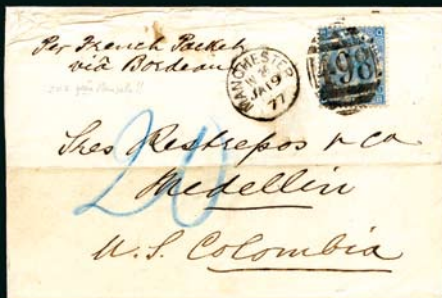 Per French Packet
via Bordeaux
MANCHESTER
JA 19
77
498
20
Sres Restrepos & Ca
Medellin
U.S. Colombia